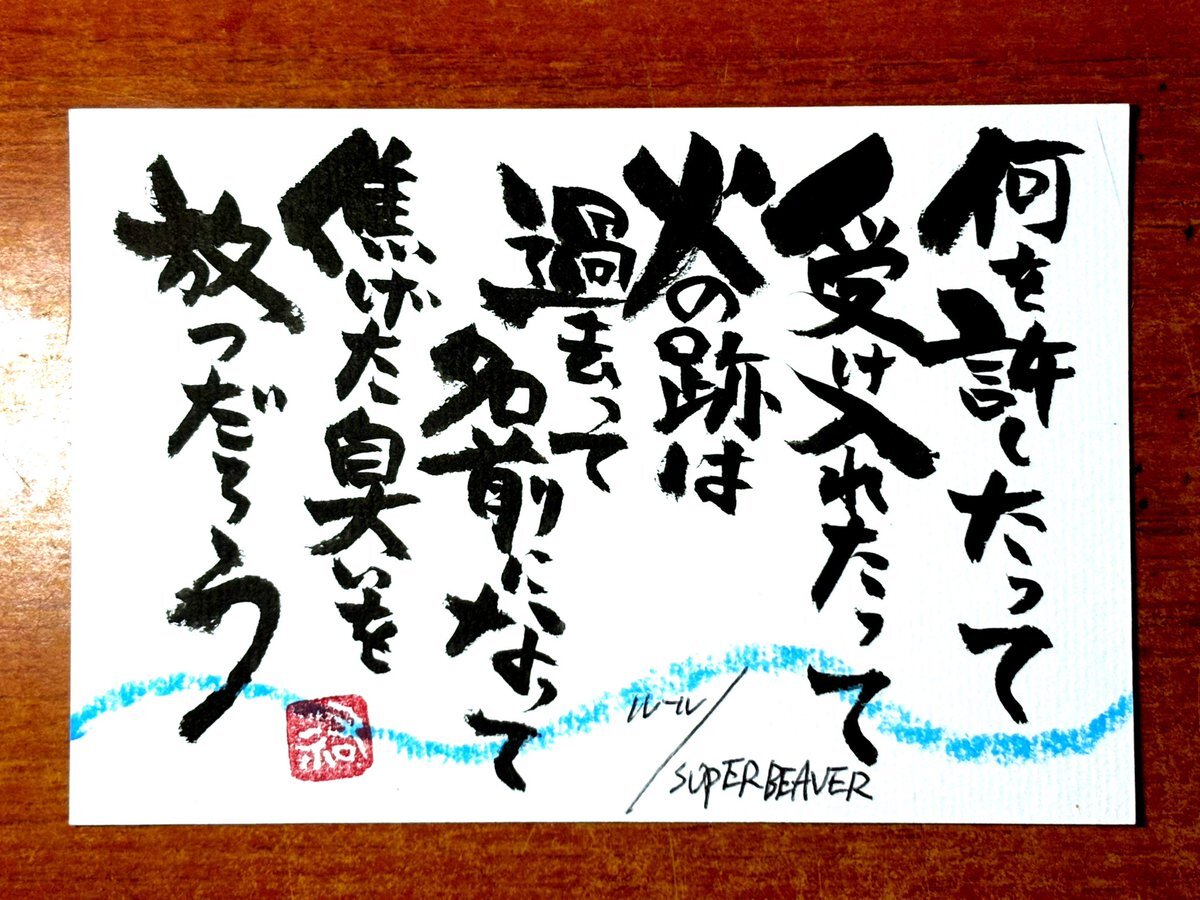 何を許したって
受け入れたって
火の跡は
過去って
名前になって
焦げた臭いを
放つだろう
ルール/
SUPER BEAVER